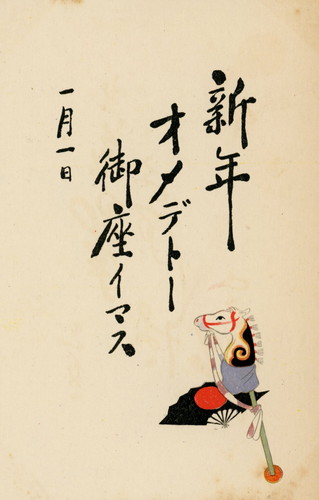 新年
オメデトー
御座イマス
一月一日